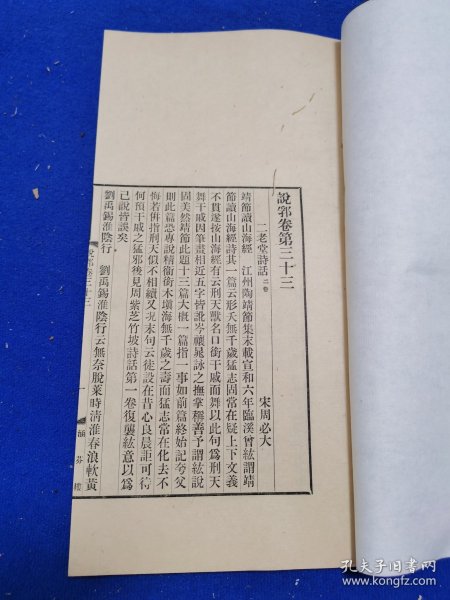 說郛卷第三十三
二老堂詩話 二卷 宋周必大
靖節讀山海經 江州陶靖節集末載宣和六年臨溪曾紘謂靖
節讀山海經詩其一篇云形夭無千歲猛志固常在疑上下文義
不貫遂按山海經有云刑天獸名口銜干戚而舞以此句爲刑天
舞干戚因筆畫相近五字皆訛岑穰晁詠之撫掌稱善予謂紘說
固美然靖節此題十三篇大槪一篇指一事如前篇終始記夸父
則此篇恐專說精衞銜木塡海無千歲之壽而猛志常在化去不
悔若倂指刑天似不相續又况末句云徒設在昔心良晨詎可待
何預干戚之猛邪後見周紫芝竹坡詩話第一卷復襲紘意以爲
已說皆誤矣
劉禹錫淮陰行 劉禹錫淮陰行云無奈脫萊時淸淮春浪軟黃
說郛卷三十三 一 涵芬樓
孔夫子旧书网
www.kongfz.com